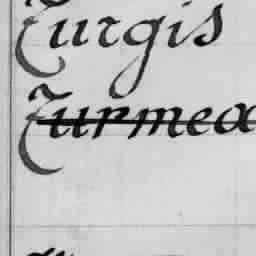 Turgis
Turmea